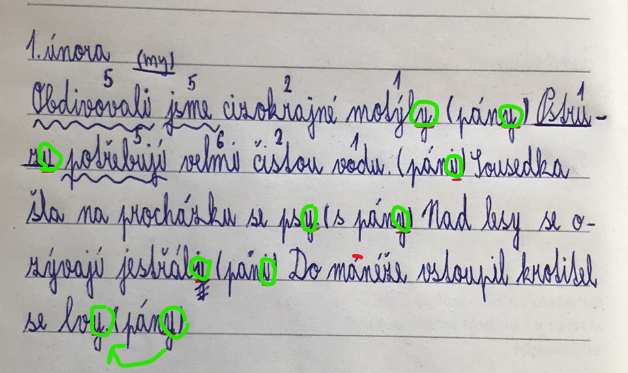 1. února (my)
5 5 2 1 1
Obdivovali jsme cizokrajné motýly (pány) Pstru-
5 6 2 1
zi potřebují velmi čistou vodu. (páni) Sousedka
šla na procházku se psy. (s pány) Nad lesy se o-
zývají jestřábi (páni) Do manéže vstoupil krotitel
se lvy. (pány)